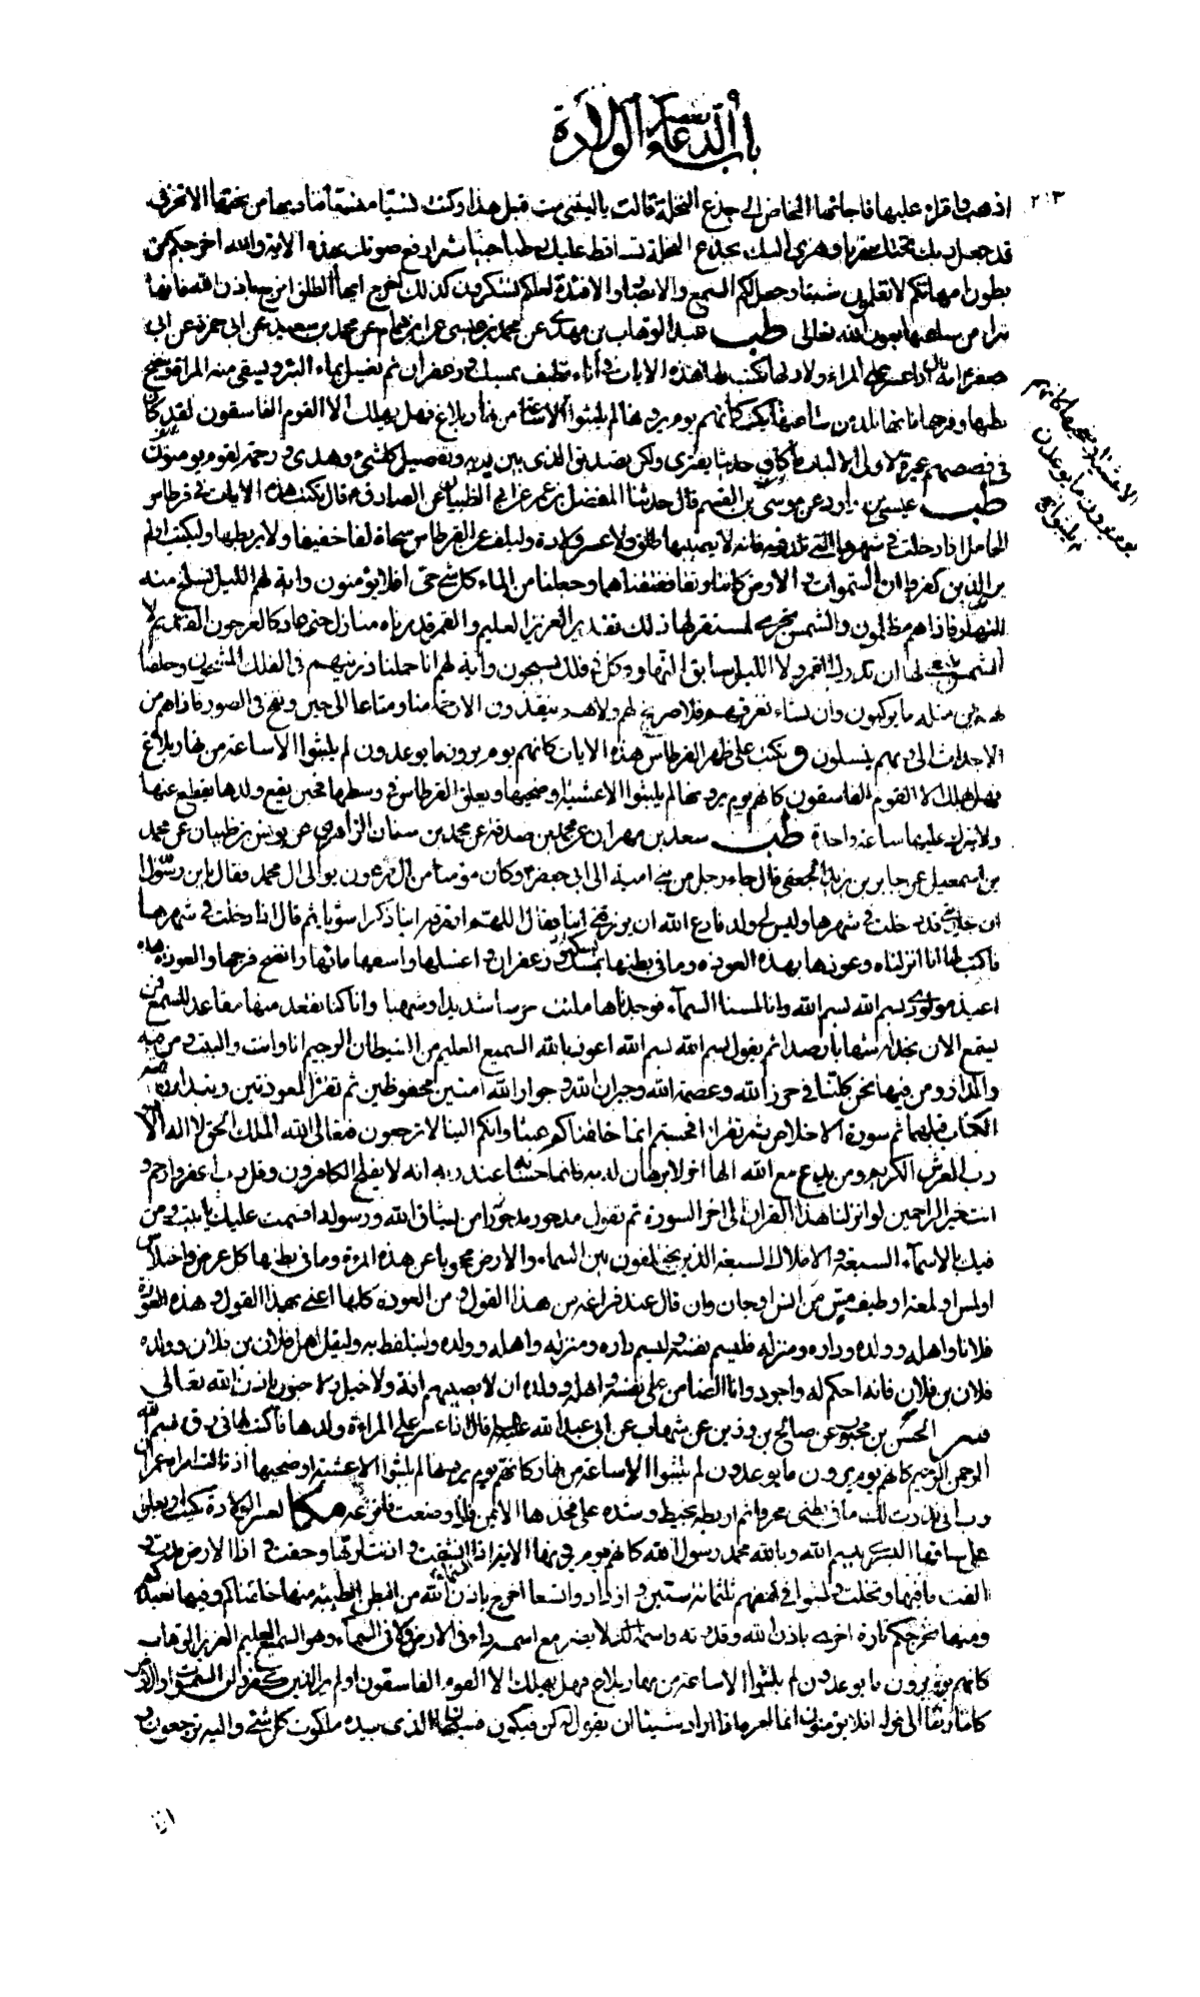 باب الدعاء لعسر الولادة
٢٠٣
اذهب واقرأ عليها فاجائها المخاض الى جذع النخلة قالت يا ليتني مت قبل هذا وكنت نسيا منسيا فناديها من تحتها الا تحزني
قد جعل ربك تحتك سريا وهزي اليك بجذع النخلة تساقط عليك رطبا جنيا ثم ارفع صوتك بهذه الاية والله اخرجكم من
بطون امهاتكم لا تعلمون شيئا وجعل لكم السمع والابصار والافئدة لعلكم تشكرون كذلك اخرج ايها الطلق اخرج باذن الله فانها
تبرا من ساعتها بعون الله تعالى طب عبد الوهاب بن مهدي عن محمد بن عيسى عن ابن همام عن محمد بن سعيد عن ابى حمزة عن ابى
جعفر انه قال اذا عسر على المراة ولادتها تكتب لها هذه الايات في اناء نظيف بمسك وزعفران ثم يغسل بماء البئر ويسقى منه المراة وينضح
بطنها وفرجها فانها تلد من ساعتها يكتب كانهم يوم يرونها لم يلبثوا الا ساعة من نهار بلاغ فهل يهلك الا القوم الفاسقون لقد كان
في قصصهم عبرة لاولى الالباب ما كان حديثا يفترى ولكن تصديق الذى بين يديه وتفصيل كل شئ وهدى ورحمة لقوم يومنون
طب عيسى بن داود عن موسى بن القسم قال حدثنا المفضل بن عمر عن ابى الظبيان عن الصادق قال يكتب هذه الايات في قرطاس
الحامل اذا دخلت في شهرها التي تلد فيه فانه لا يصيبها طلق ولا عسر ولادة وليلف على القرطاس سحاة لفا خفيفا ولا يربطها وليكتب اولم
ير الذين كفروا ان السموات والارض كانتا رتقا ففتقناهما وجعلنا من الماء كل شئ حي افلا يؤمنون واية لهم الليل نسلخ منه
النهار فاذا هم مظلمون والشمس تجري لمستقر لها ذلك تقدير العزيز العليم والقمر قدرناه منازل حتى عاد كالعرجون القديم لا
الشمس ينبغي لها ان تدرك القمر ولا الليل سابق النهار وكل في فلك يسبحون واية لهم انا حملنا ذريتهم في الفلك المشحون وخلقنا
لهم من مثله ما يركبون وان نشاء نغرقهم فلا صريخ لهم ولا هم ينقذون الا رحمة منا ومتاعا الى حين ونفخ في الصور فاذا هم من
الاجداث الى ربهم ينسلون ويكتب على ظهر القرطاس هذه الايات كانهم يوم يرون ما يوعدون لم يلبثوا الا ساعة من نهار بلاغ
فهل يهلك الا القوم الفاسقون كانهم يوم يرونها لم يلبثوا الا عشية او ضحيها ويعلق القرطاس في وسطها فحين يقع ولدها يقطع عنها
ولا يترك عليها ساعة واحدة طب سعد بن مهران عن محمد بن صدقة عن محمد بن سنان الزاهري عن يونس بن ظبيان عن محمد
بن اسمعيل عن جابر بن يزيد الجعفى قال جاء رجل من بني امية الى ابى جعفر وكان مؤمنا من ال فرعون يوالى ال محمد فقال يا بن رسول الله
ان جاريتي قد دخلت في شهرها وليس لي ولد فادع الله ان يرزقني ابنا فقال اللهم ارزقه ابنا ذكرا سويا ثم قال اذا دخلت في شهرها
فاكتب لها انا انزلناه وعوذها بهذه العوذة وما في بطنها بمسك وزعفران واغسلها واسقها مائها وانضح فرجها والعوذة هذه
اعيذ مولودي بسم الله بسم الله وانا لمسنا السماء فوجدناها ملئت حرسا شديدا وشهبا وانا كنا نقعد منها مقاعد للسمع فمن
يستمع الان يجد له شهابا رصدا ثم يقول بسم الله بسم الله اعوذ بالله السميع العليم من الشيطان الرجيم انا وانت والبيت ومن فيه
والدار ومن فيها نحن كلنا في حرز الله وعصمة الله وجيران الله وجوار الله امنين محفوظين ثم تقرأ المعوذتين ويبدأ بفاتحة
الكتاب قبلهما ثم سورة الاخلاص ثم تقرأ افحسبتم انما خلقناكم عبثا وانكم الينا لا ترجعون فتعالى الله الملك الحق لا اله الا هو
رب العرش الكريم ومن يدع مع الله الها اخر لا برهان له به فانما حسابه عند ربه انه لا يفلح الكافرون وقل رب اغفر وارحم و
انت خير الراحمين لو انزلنا هذا القران الى اخر السورة ثم تقول مدحور مدحور من يشاق الله ورسوله اقسمت عليك يا بيت ومن
فيك بالاسماء السبعة والاملاك السبعة الذين يختلفون بين السماء والارض محجوبا عن هذه المرءة وما في بطنها كل عرض واختلاس
او لمس او لمعة او طيف مس من انس او جان وان قال عند فراغه من هذا القول ومن العوذة كلها اعني بهذا القول وهذه العوذة
فلانا واهله وولده وداره ومنزله فليسم نفسه وليسم داره ومنزله واهله وولده وليتلفظ به وليقل اهل فلان بن فلان وولده
فلان بن فلان فانه احكم له واجود وانا الضامن على نفسه واهله وولده ان لا يصيبهم افة ولا خبل ولا جنون باذن الله تعالى
الحسن بن محبوب عن صالح بن رزين عن شهاب عن ابى عبد الله عليه قال اذا عسر على المراءة ولدها فاكتب لها في رق بسم الله
الرحمن الرحيم كانهم يوم يرون ما يوعدون لم يلبثوا الا ساعة من نهار كانهم يوم يرونها لم يلبثوا الا عشية او ضحيها اذ قالت امراة عمران
رب اني نذرت لك ما في بطني محررا ثم اربطه بخيط وشده على فخذها الايمن فاذا وضعت فانزعه مكا لعسر الولادة يكتب ويعلق
على ساقها اليسرى بسم الله وبالله محمد رسول الله كانهم يوم يرونها الاية اذا السماء انشقت واذنت لربها وحقت واذا الارض مدت و
القت ما فيها وتخلت ولبثوا في كهفهم ثلثمائة سنين وازدادوا تسعا اخرج باذن الله من البطن الطيبة منها خلقناكم وفيها نعيدكم
ومنها نخرجكم تارة اخرى باذن الله وقدرته واسمه الذي لا يضر مع اسمه داء في الارض ولا في السماء وهو السميع العليم العزيز الوهاب
كانهم يوم يرون ما يوعدون لم يلبثوا الا ساعة من نهار بلاغ فهل يهلك الا القوم الفاسقون اولم ير الذين كفروا ان السموات والارض
كانتا رتقا الى قوله افلا يؤمنون انما امره اذا اراد شيئا ان يقول له كن فيكون فسبحان الذى بيده ملكوت كل شئ واليه ترجعون
الا عشية او ضحيها كانهم
يوم يرون ما يوعدون
لم يلبثوا